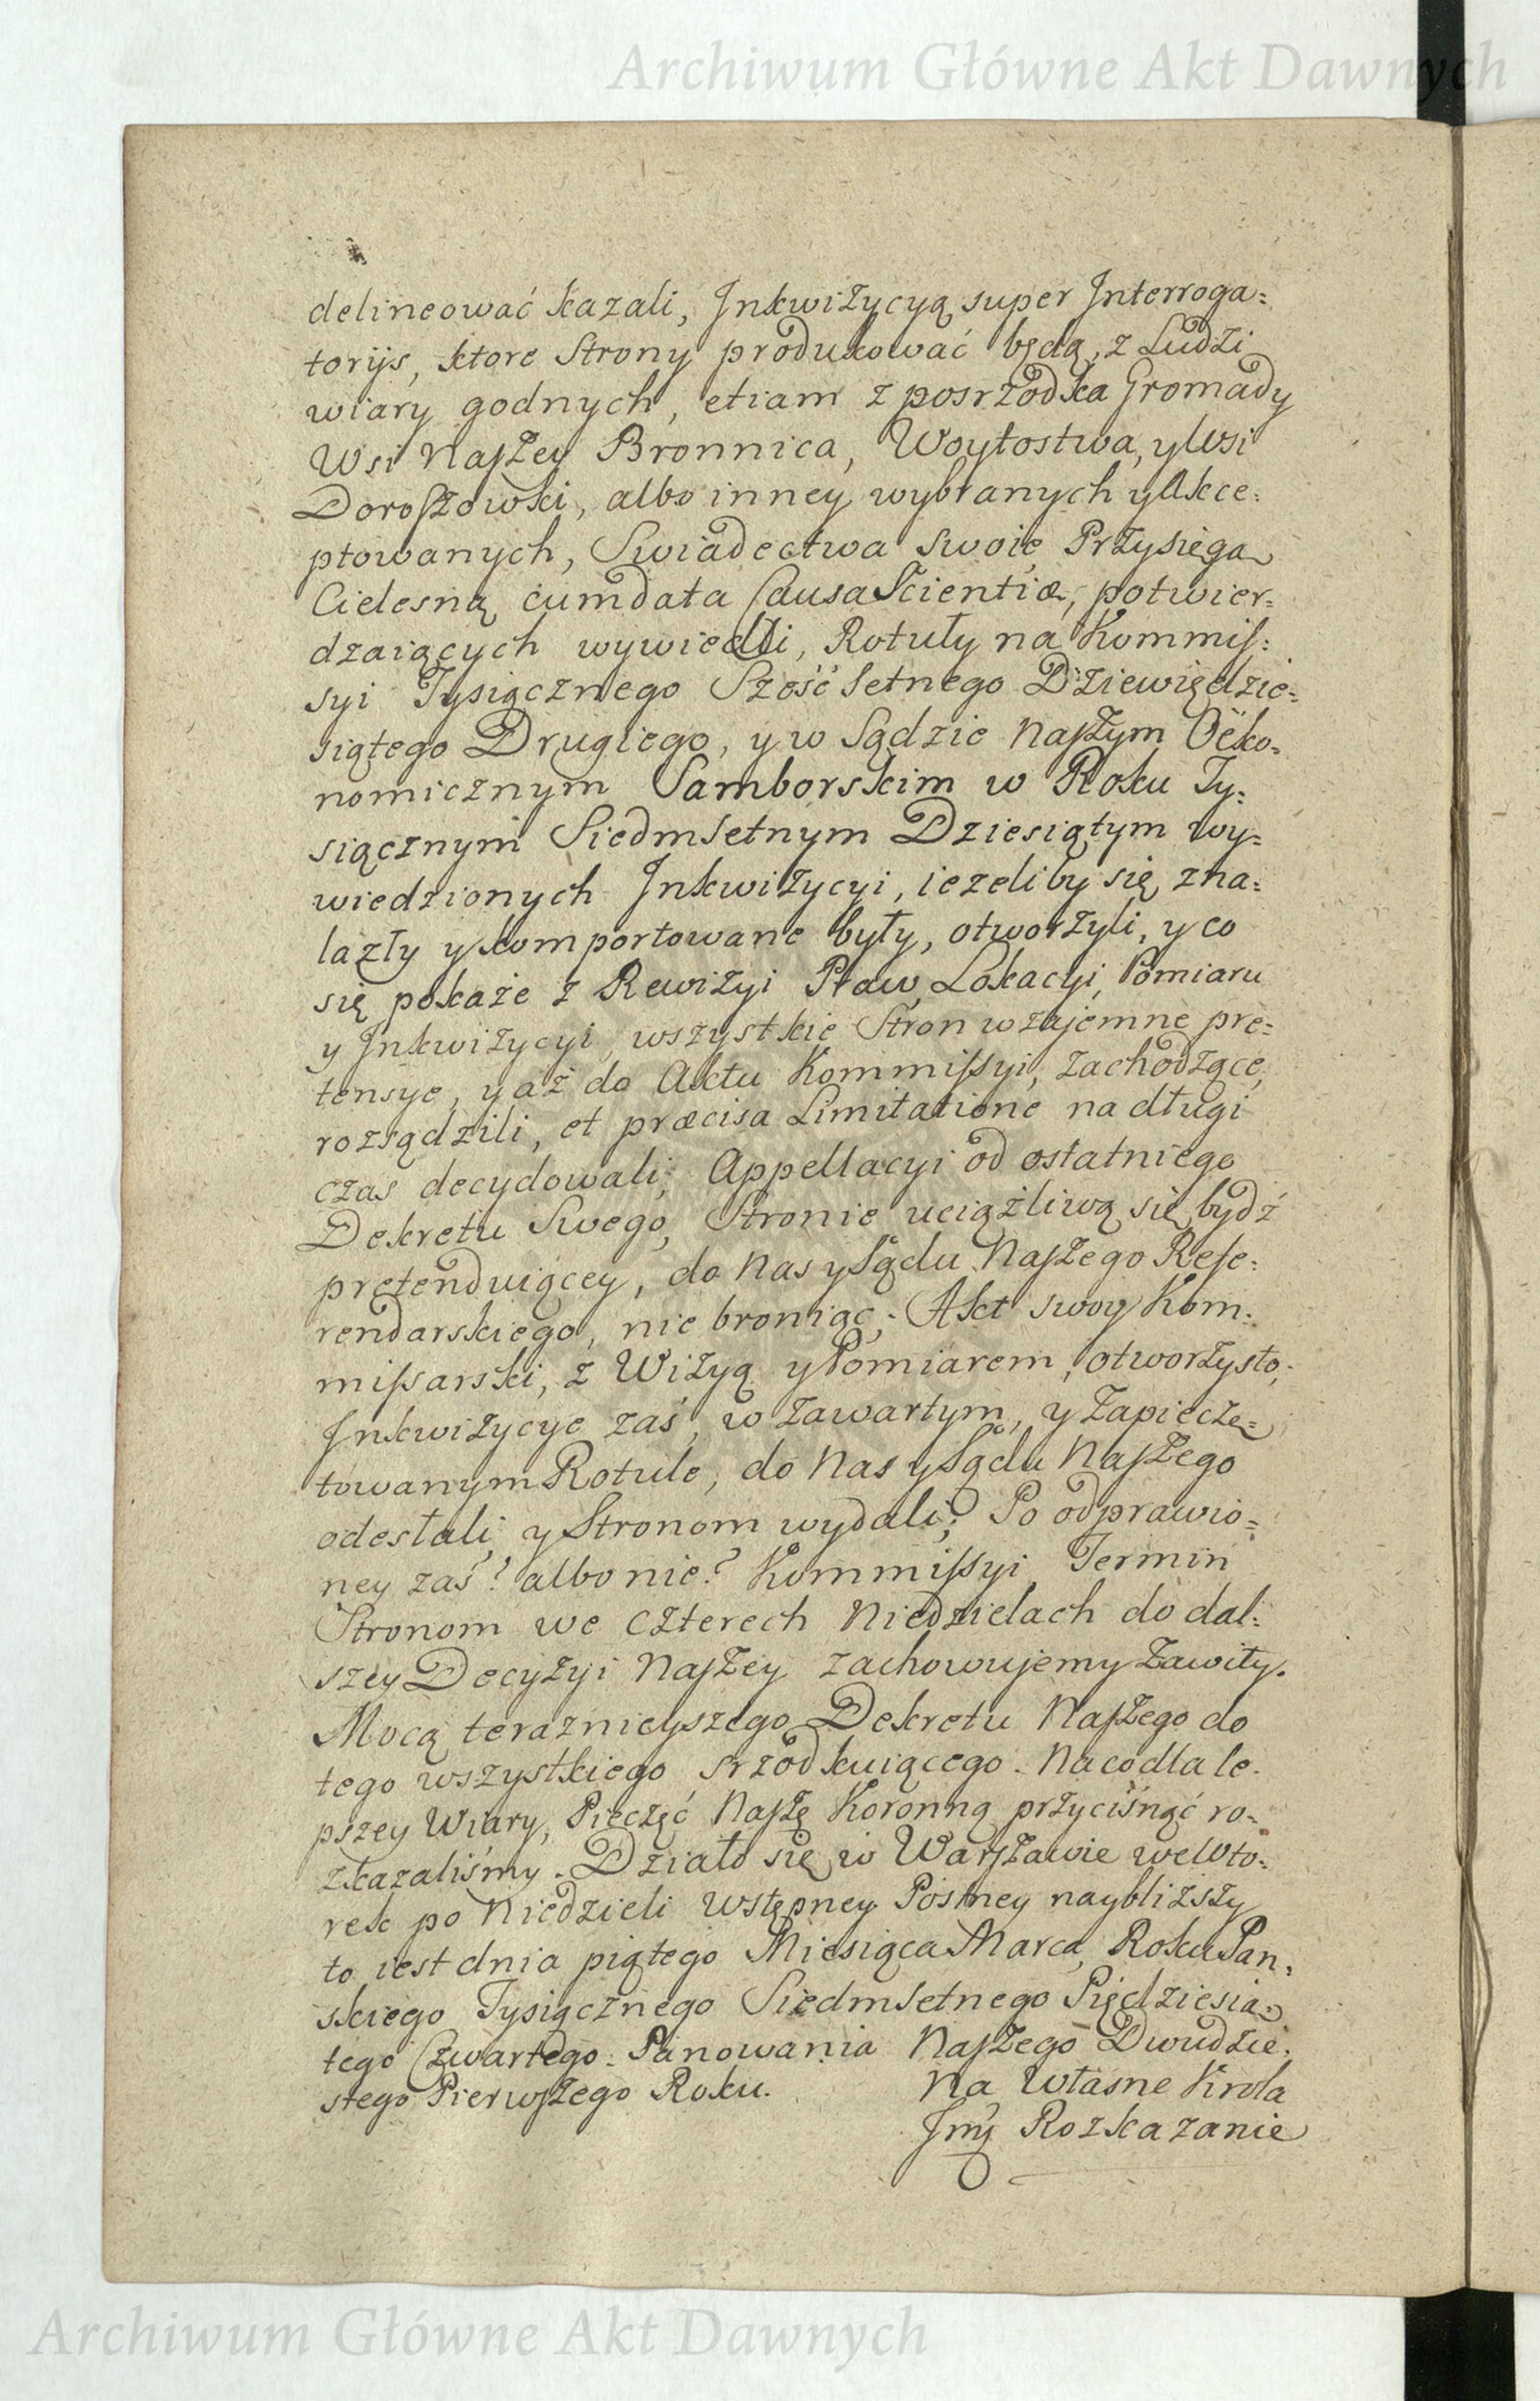 Archiwum Główne Akt Dawnych
delineować kazali, Inkwiżycyą super Interroga=
torijs, ktore Strony produkować będą, z Ludzi
wiary godnych, etiam z posrzodka Gromady
Wsi Naszey Bronnica, Woytostwa, y Wsi
Doroszowski, albo inney wybranych y Akce=
ptowanych, Swiadectwa swoie Przysięgą
Cielesną cum data Causa Scientiæ, potwier=
dzaiących wywiedli, Rotuły na Kommis=
syi Tysiącznego Sześć setnego Dziewiędzie=
siątego Drugiego, y w Sądzie Naszym Oëko=
nomicznym Samborskim w Roku Ty=
siącznym Siedmsetnym Dziesiątym wy=
wiedzionych Inkwiżycyi, ieżeliby się zna=
lazły y komportowane były, otworżyli, y co
się pokaże z Rewiżyi Praw, Lokacyi, Pomiaru
y Inkwiżycyi, wszystkie Stron wzajemne pre=
tensye, y aż do Aktu Kommissyi, zachodzące,
rozsądzili, et præcisa Limitatione na długi
czas decydowali; Appellacyi od ostatniego
Dekretu Swego, Stronie uciążliwą się bydź
pretenduiącey, do Nas y Sądu Naszego Refe=
rendarskiego, nie broniąc; Akt swoy Kom=
missarski, z Wiżyą y Pomiarem, otworżysto,
Inkwiżycye zaś, w zawartym, y zapieczę=
towanym Rotule, do Nas y Sądu Naszego
odesłali, y Stronom wydali; Po odprawio=
ney zaś? albo nie? Kommissyi Termin
Stronom we czterech Niedzielach do dal=
szey Decyżyi Naszey zachowujemy zawity.
Mocą teraznieyszego Dekretu Naszego do
tego wszystkiego srzodkuiącego. Na co dla le=
pszey Wiary, Pieczęć Naszę Koronną przyciśnąć ro=
zkazaliśmy. Działo się w Warszawie we Wto=
rek po Niedzieli Wstępney Postney naybliższy
to iest dnia piątego Miesiąca Marca, Roku Pan=
skiego Tysiącznego Siedmsetnego Pięćdziesią=
tego Czwartego. Panowania Naszego Dwudzie=
stego Pierwszego Roku.
Na Własne Krola
Jmści Rozkazanie
Archiwum Główne Akt Dawnych